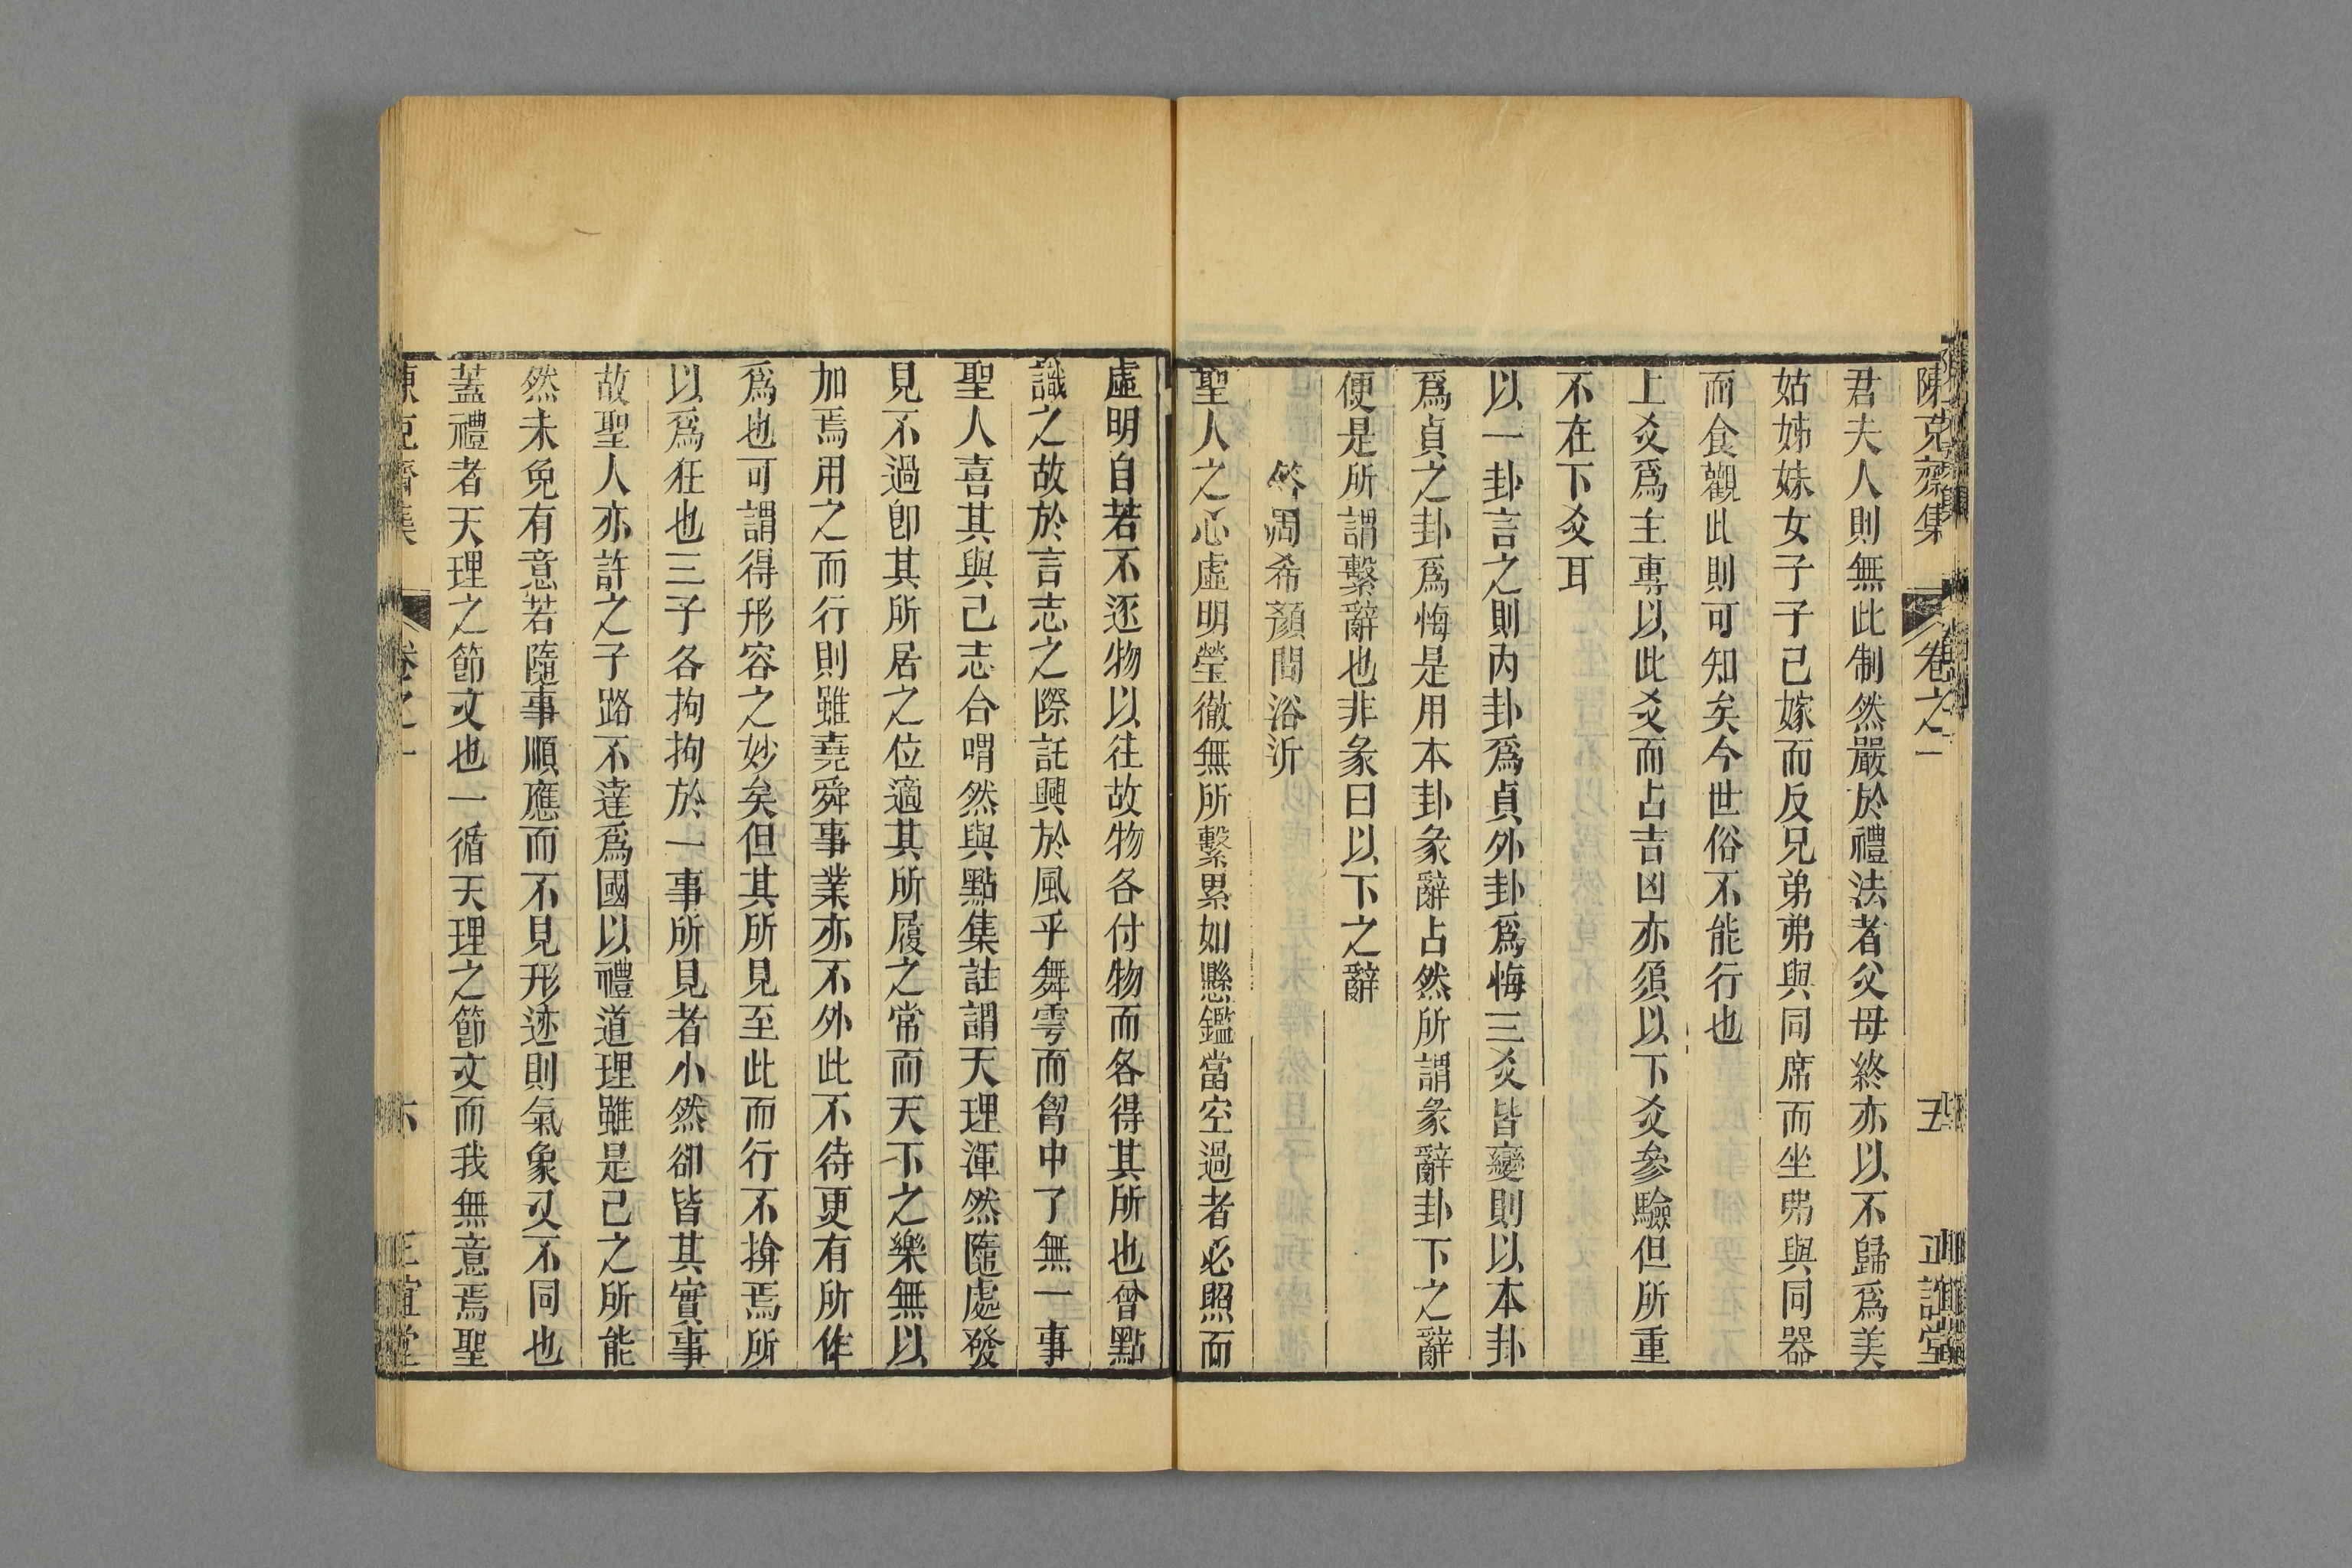 陳克齋集 卷之一 五 正誼堂
君夫人則無此制然嚴於禮法者父母終亦以不歸爲美
姑姊妹女子子已嫁而反兄弟弗與同席而坐弗與同器
而食觀此則可知矣今世俗不能行也
上爻爲主專以此爻而占吉凶亦須以下爻參驗但所重
不在下爻耳
以一卦言之則內卦爲貞外卦爲悔三爻皆變則以本卦
爲貞之卦爲悔是用本卦彖辭占然所謂彖辭卦下之辭
便是所謂繫辭也非彖曰以下之辭
答周希顏問浴沂
聖人之心虛明瑩徹無所繫累如懸鑑當空過者必照而
虛明自若不逐物以往故物各付物而各得其所也曾點
識之故於言志之際託興於風乎舞雩而胷中了無一事
聖人喜其與己志合喟然與點集註謂天理渾然隨處發
見不過卽其所居之位適其所履之常而天下之樂無以
加焉用之而行則雖堯舜事業亦不外此不待更有所作
爲也可謂得形容之妙矣但其所見至此而行不揜焉所
以爲狂也三子各拘拘於一事所見者小然卻皆其實事
故聖人亦許之子路不達爲國以禮道理雖是己之所能
然未免有意若隨事順應而不見形迹則氣象又不同也
蓋禮者天理之節文也一循天理之節文而我無意焉聖
陳克齋集 卷之一 六 正誼堂